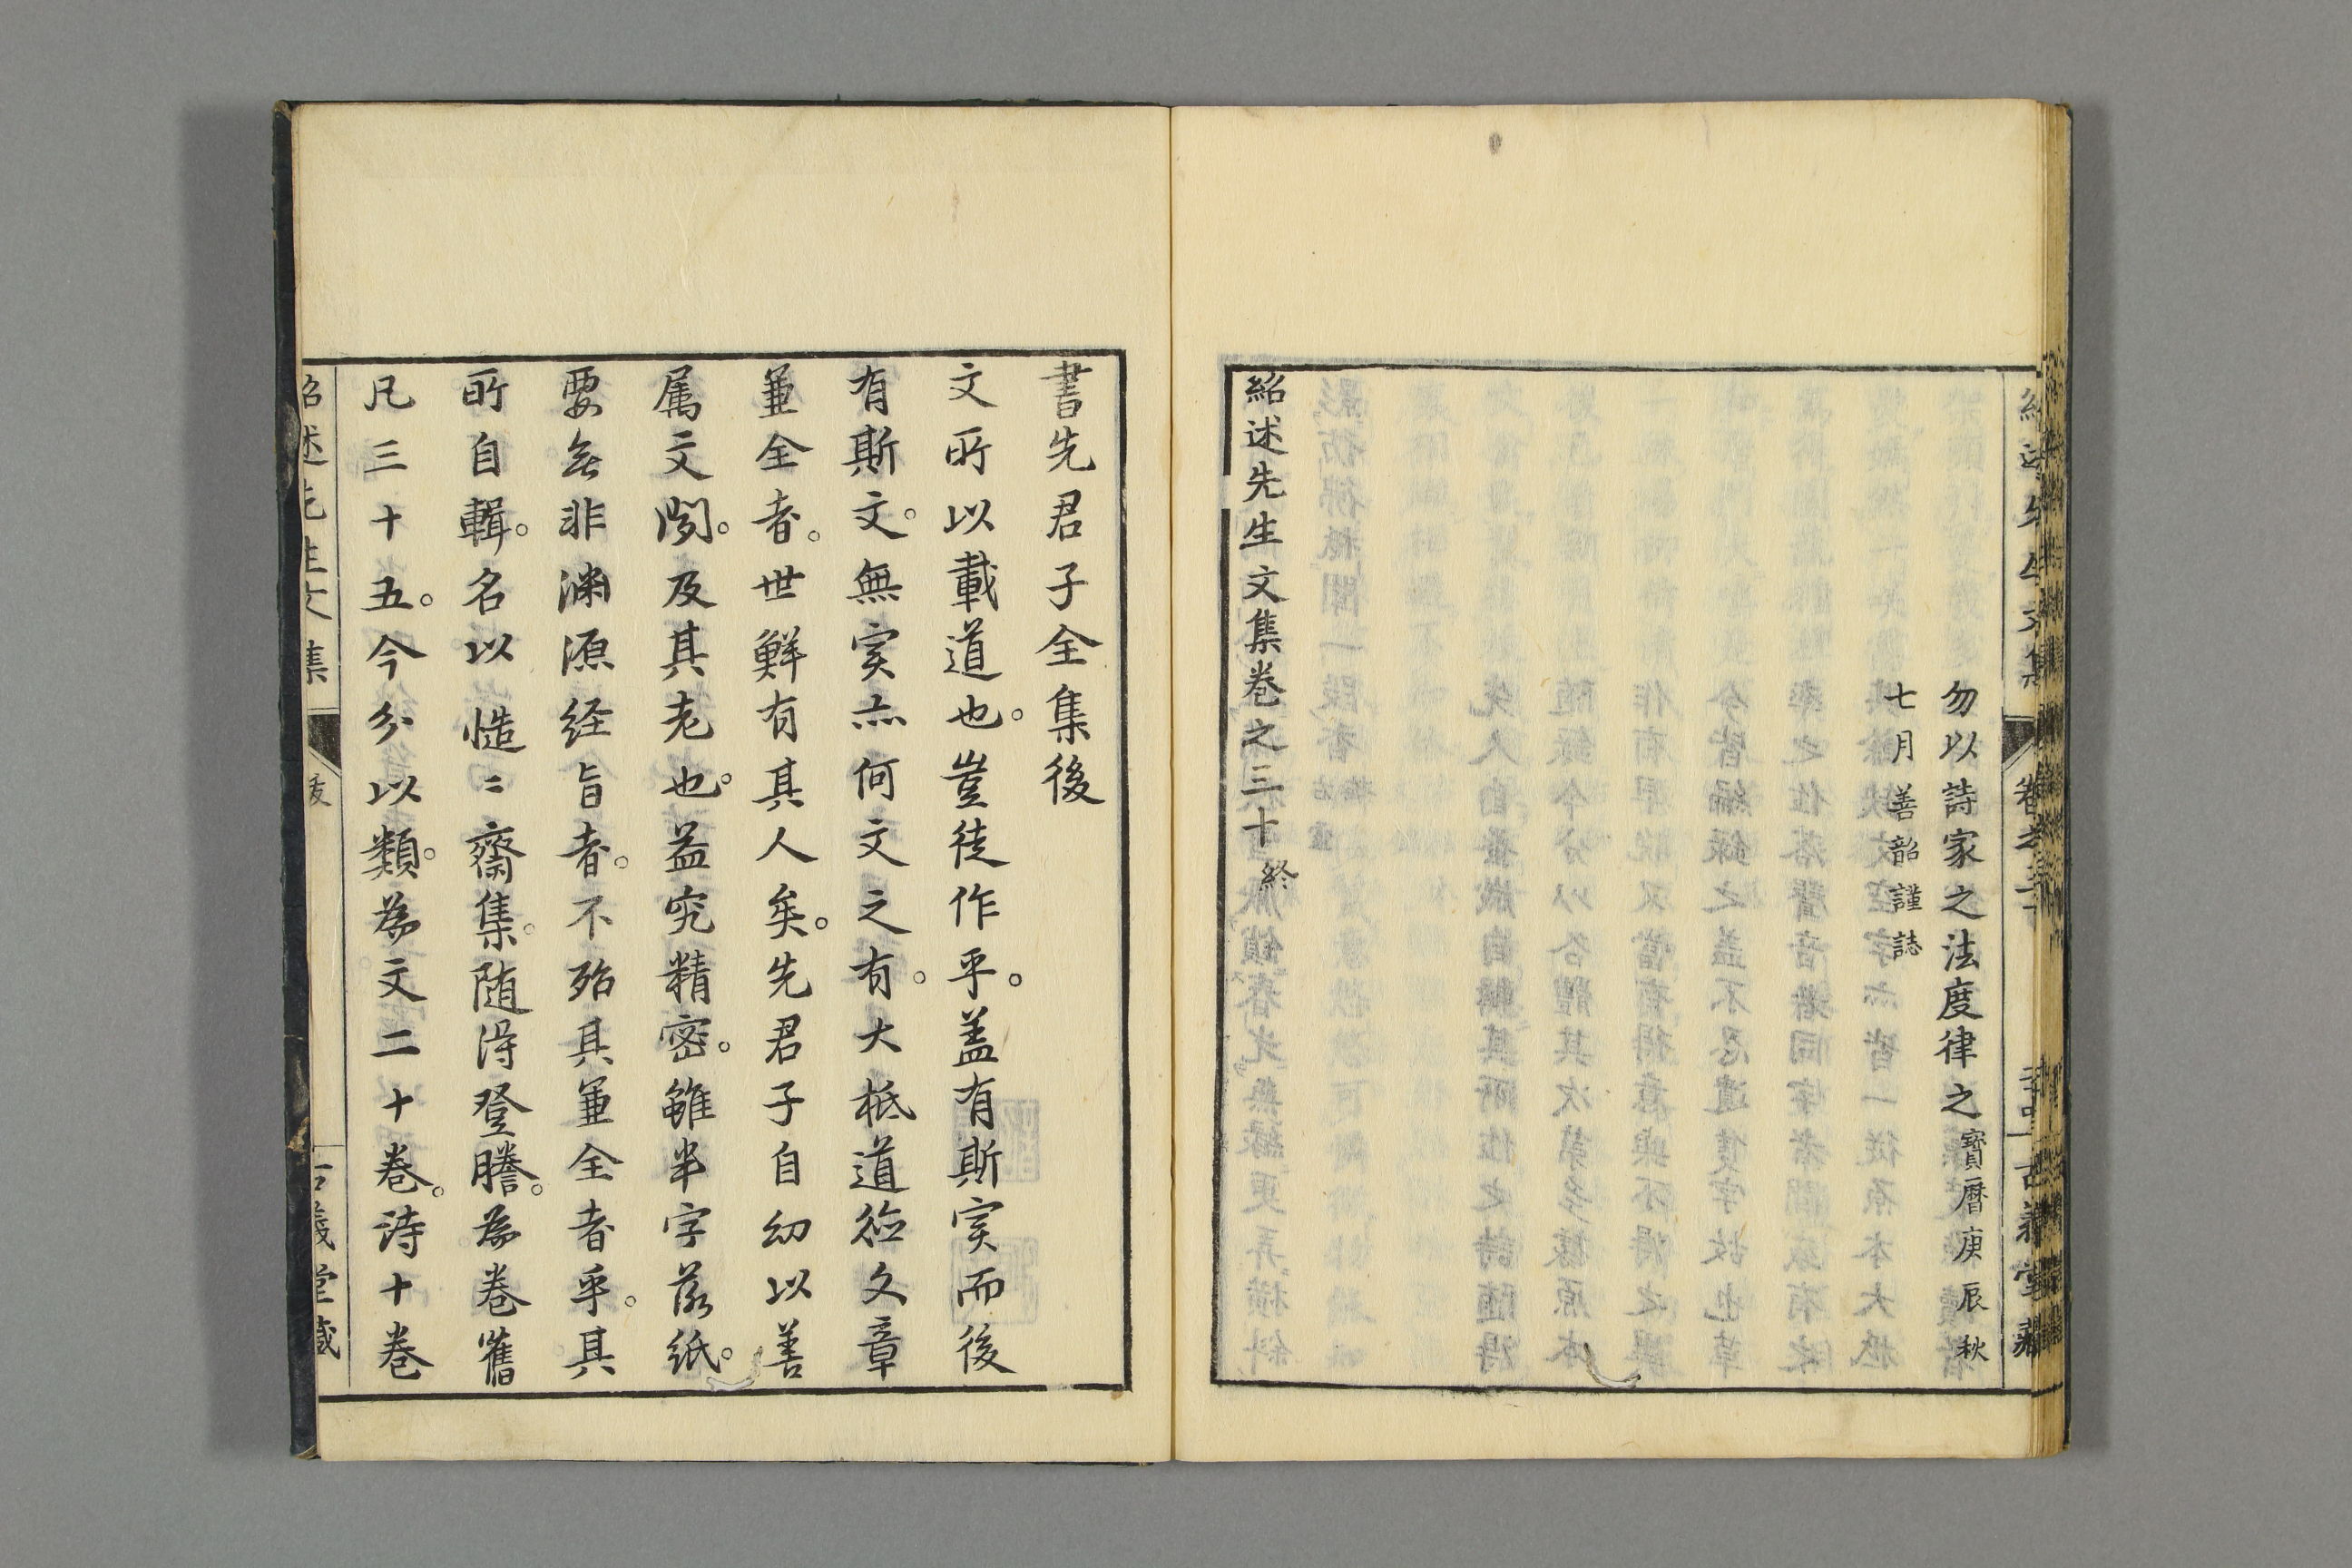 勿以詩家之法度律之寶曆庚辰秋
七月善韶謹誌
紹述先生文集卷之三十終
書先君子全集後
文所以載道也。豈徒作乎。盖有斯実而後
有斯文。無実亦何文之有。大抵道德文章
兼全者。世鮮有其人矣。先君子自幼以善
属文聞。及其老也。益究精密。雖半字落紙。
要無非渊源経旨者。不殆具兼全者乎。其
所自輯。名以慥〻齋集。随得登謄。為卷舊
凡三十五。今分以類。為文二十卷。诗十卷